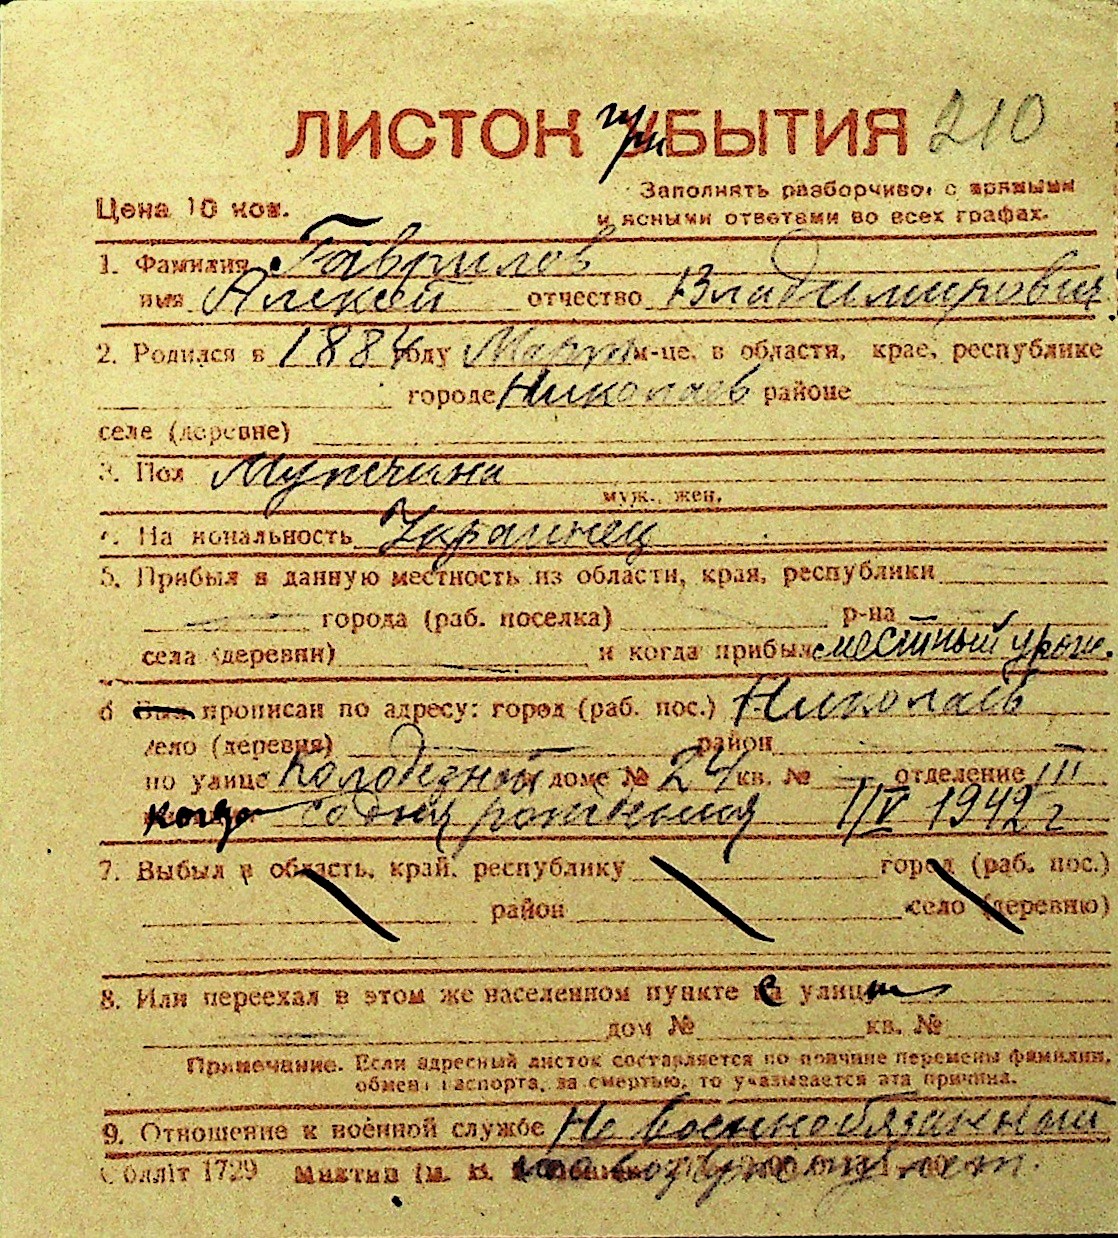 ЛИСТОК при УБЫТИЯ 210
Цена 10 коп.
Заполнять разборчиво, с прямыми
и ясными ответами во всех графах.
1. Фамилия Гаврилов
имя Алексей отчество Владимирович
2. Родился в 1884 году Март м-це, в области, крае, республике
городе Николаев районе
селе (деревне)
3. Пол Мужчина
муж., жен.
4. Национальность Украинец
5. Прибыл в данную местность из области, края, республики
города (раб. поселка) р-на
села (деревни) и когда прибыл местный урож.
6 прописан по адресу: город (раб. пос.) Николаев
село (деревня) район
по улице Колодезной доме № 24 кв. № отделение III
когда со дня рождения 1/IV 1942 г
7. Выбыл в область, край, республику город (раб. пос.)
район село (деревню)
8. Или переехал в этом же населенном пункте с улицы
дом № кв. №
Примечание. Если адресный листок составляется по причине перемены фамилии,
обмена паспорта, за смертью, то указывается эта причина.
9. Отношение к военной службе Не военнообязанный
Облліт 1729 по возрасту лет.